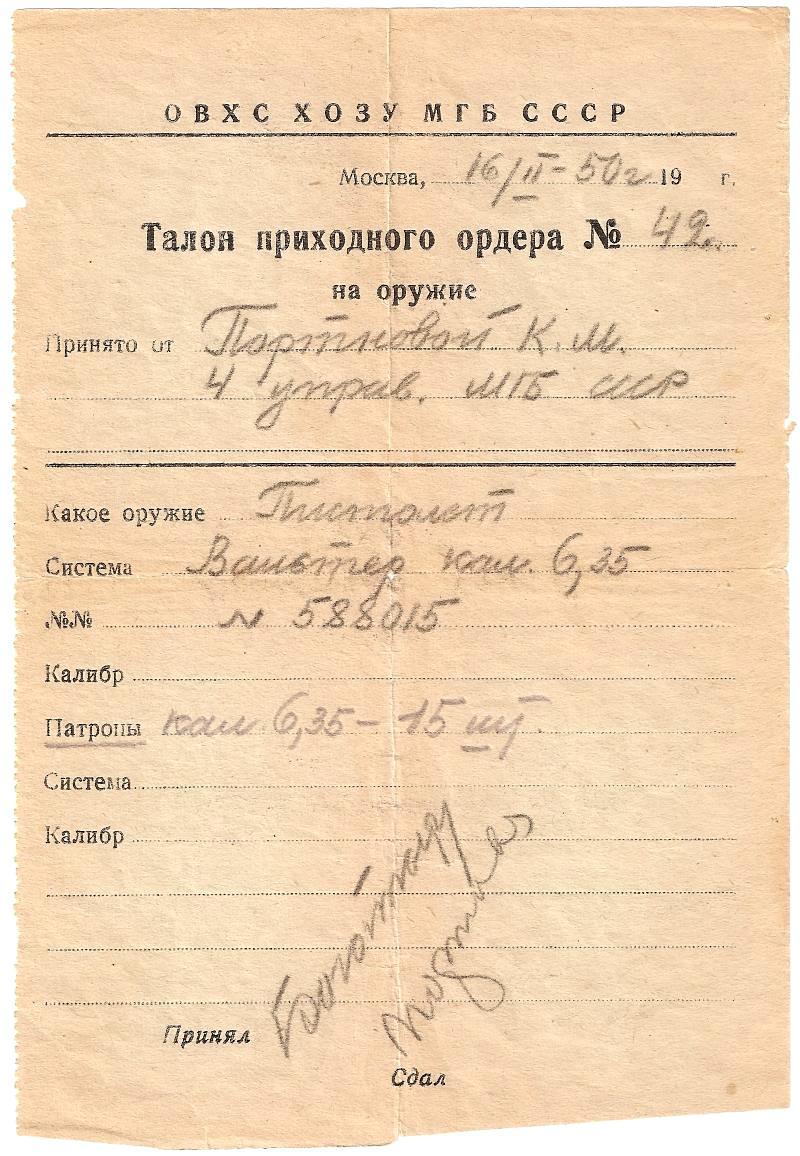 ОВХС ХОЗУ МГБ СССР
Москва, 16/II-50г 19 г.
Талон приходного ордера № 42
на оружие
Принято от Портновой К. М.
4 управ. МГБ СССР
Какое оружие Пистолет
Система Вальтер кал. 6,35
№№ N 588015
Калибр
Патроны кал 6,35 - 15 шт.
Система
Калибр
Принял
Сдал